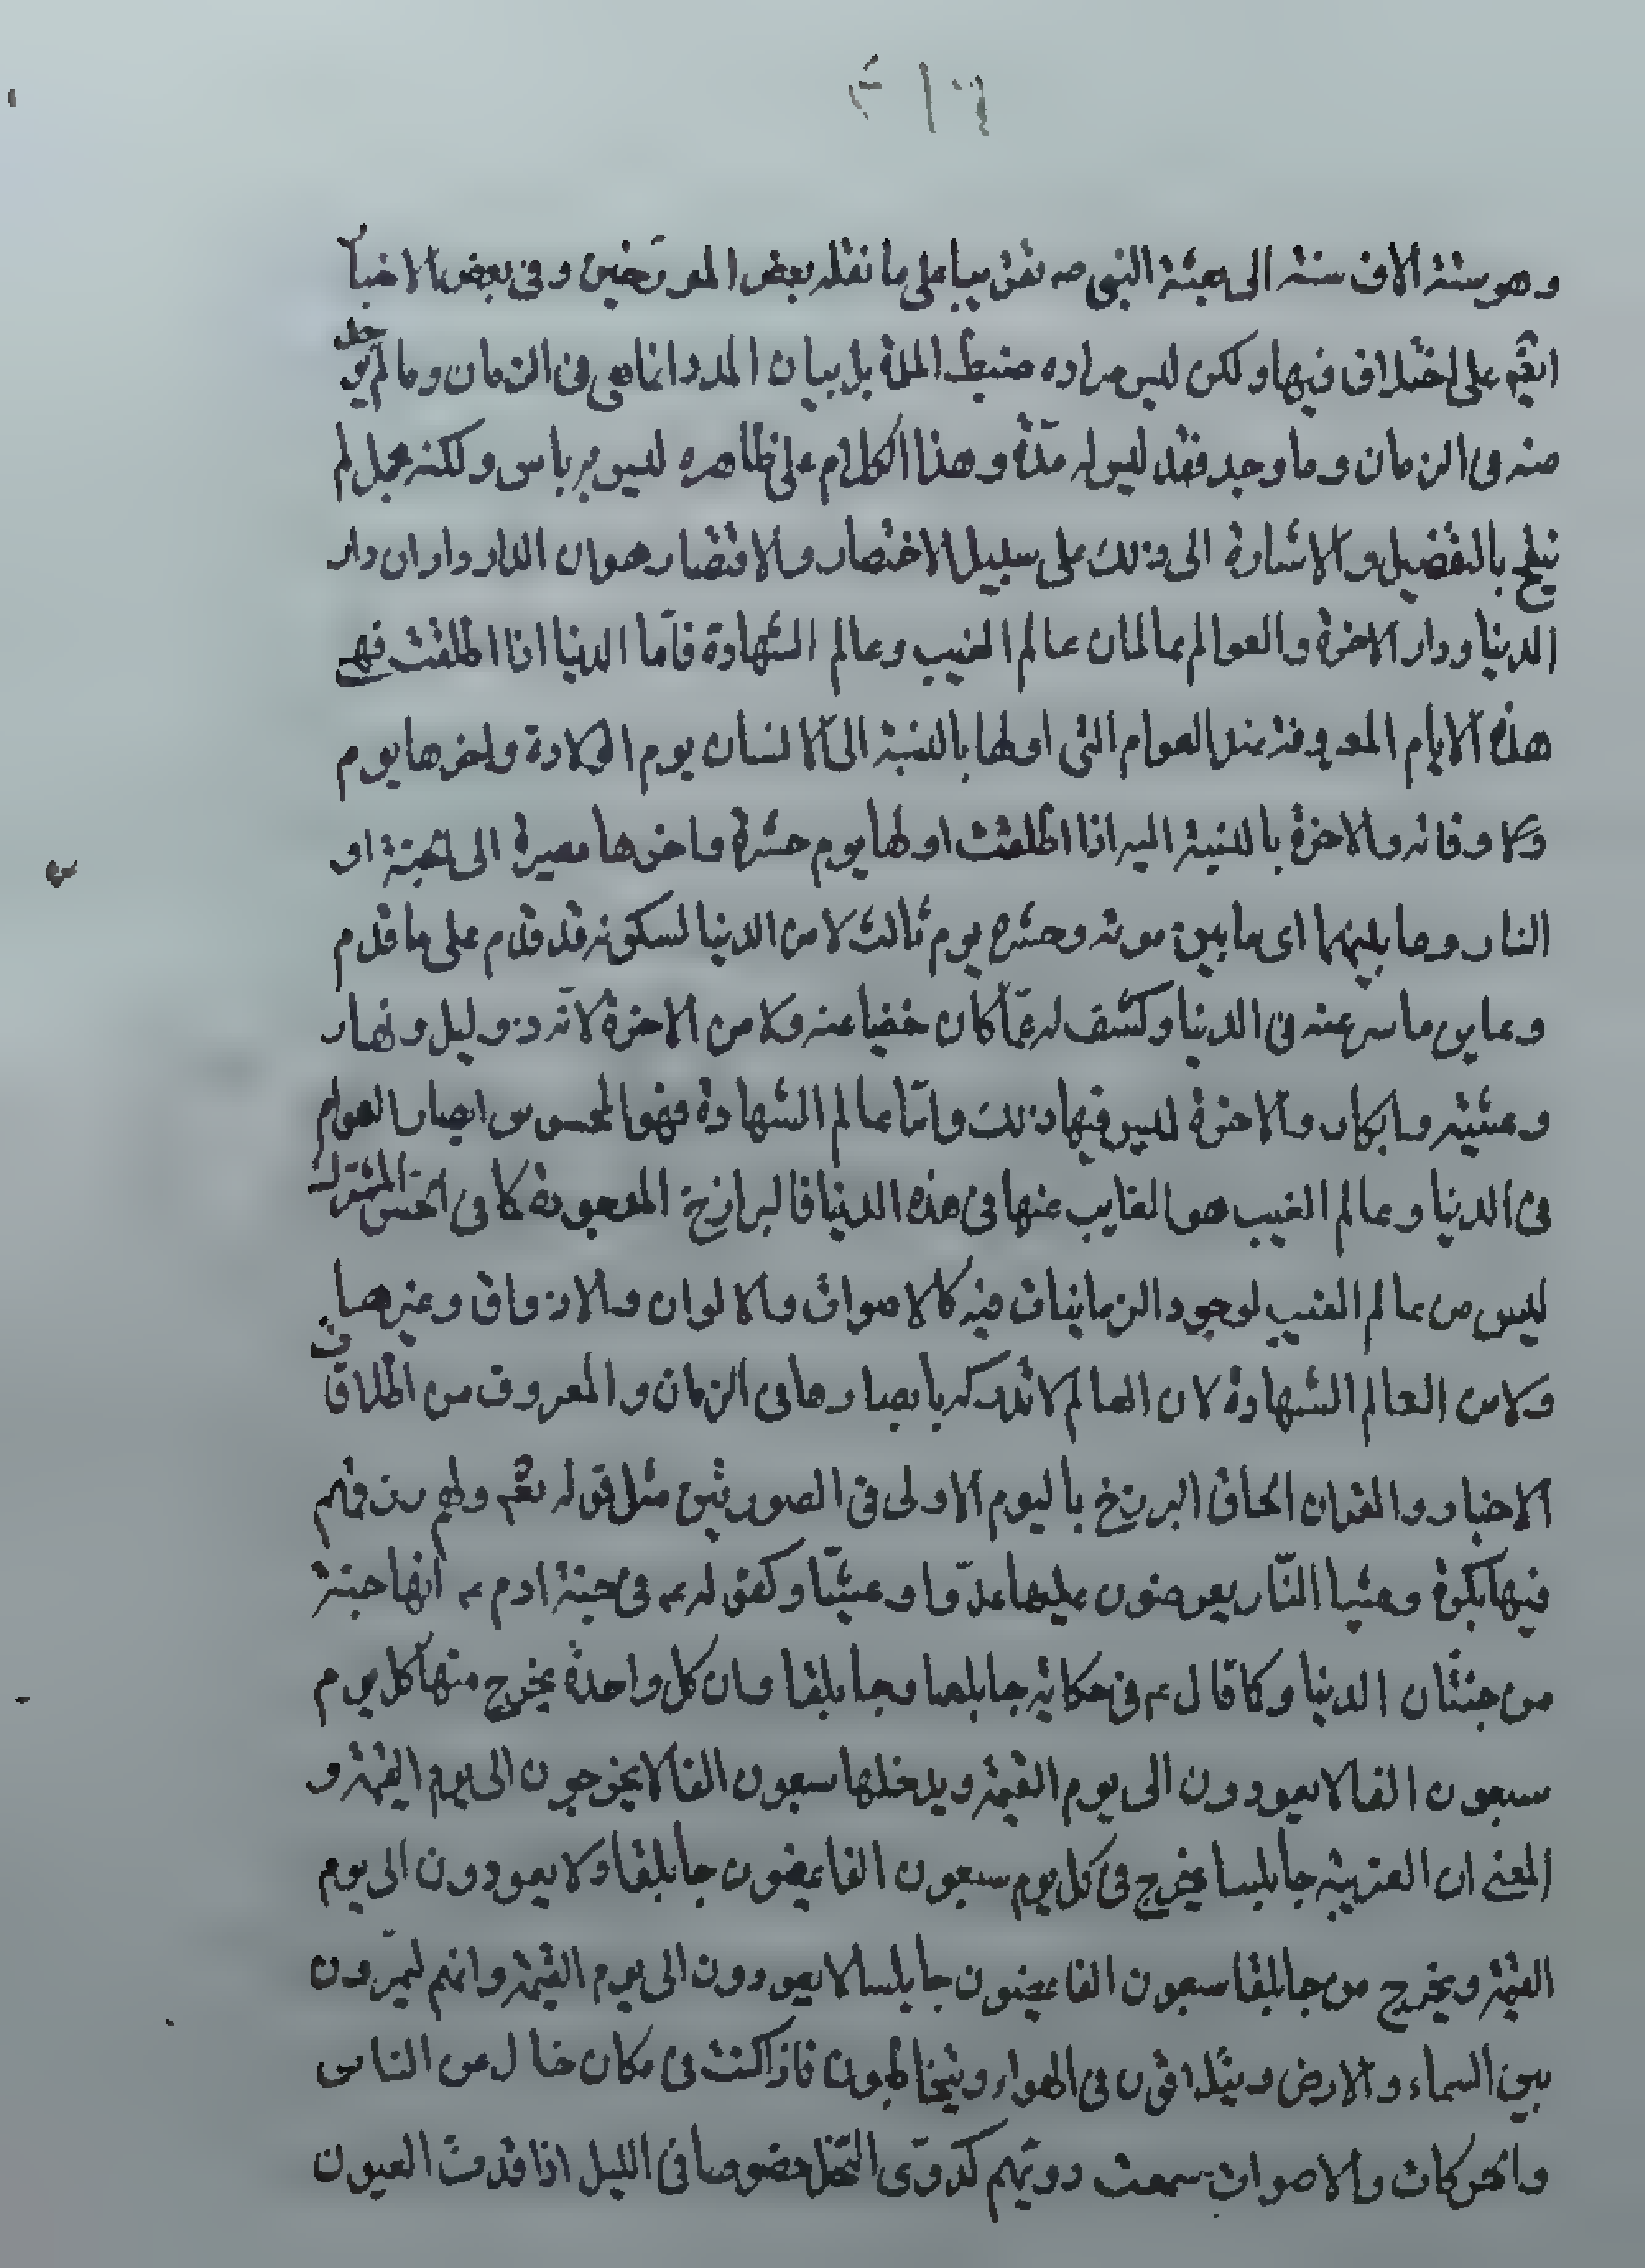 وهو ستة الاف سنة الى بعثة النبى صه تقريبا على ما نقله بعض المورّخين وفى بعض الاخبار
ايضم على اختلاف فيها ولكن ليس مراده ضبط المدة بل بيان المدد انما هى فى الزمان وما لم يوجد
منه فى الزمان وما وجد فقد ليس له مدّة وهذا الكلام على ظاهره ليس به باس ولكنه مجمل لم
بالتفصيل والاشارة الى ذلك على سبيل الاختصار والاقتصار هوان الدار داران دار
الدنيا ودار الاخرة والعوالم عالمان عالم الغيب وعالم الشهادة فاما الدنيا اذا اطلقت فهى
هذه الايام المعروفة عند العوام التى اولها بالنسبة الى الانسان يوم الولادة واخرها يوم
وفاته والاخرة بالنسبة اليه اذا اطلقت اولها يوم حشرة واخرها مصيرة الى الجنة او
النار وما بينهما اى ما بين موته وحشره يوم ثالث لا من الدنيا لسكونه قد قدم على ما قدم
وعاين ما سر عنه فى الدنيا وكشف له عمّا كان خفيا عنه ولا من الاخرة لانّه ذو ليل ونهار
وعشية وابكار والاخرة ليس فيها ذلك وامّا عالم الشهادة فهو المحسوس ابصار العوام
فى الدنيا وعالم الغيب هو الغايب عنها فى هذه الدنيا فالبرازخ الموجودة كما فى الحسّ المشترك
ليس من عالم الغيب لوجود الزمانيات فيه كالاصوات والالوان والاذواق وغيرها
ولا من العالم الشهادة لان العالم لا تدركه بابصارها فى الزمان والمعروف من اطلاق فى
الاخبار والقران الحاق البرزخ باليوم الاولى فى الصورتين مثل قوله تعم ولهم رزقهم
فيها بكرة وعشيا النّار يعرضون عليها غدّوا وعشيّا وكقوله ع فى جنة ادم ع انها جنة
من جنتان الدنيا وكما قال ع فى حكاية جابلصا وجابلقا وان كل واحدة يخرج منها كل يوم
سبعون الفا لا يعودون الى يوم القيمة ويدخلها سبعون الفا لا يخرجون الى يوم القيمة و
المعنى ان الغربية جابلسا يخرج فى كل يوم سبعون الفا يمضون جابلقا ولا يعودون الى يوم
القيمة ويخرج من جابلقا سبعون الفا يمضون جابلسا لا يعودون الى يوم القيمة وانهم ليمرّون
بين السماء والارض ويتلاقون فى الهواء ويتخاطبون فاذا كنت فى مكان خال عن الناس
والحركات والاصوات سمعت دويّهم كدوّى النّحل خصوصا فى الليل اذا هدت العيون